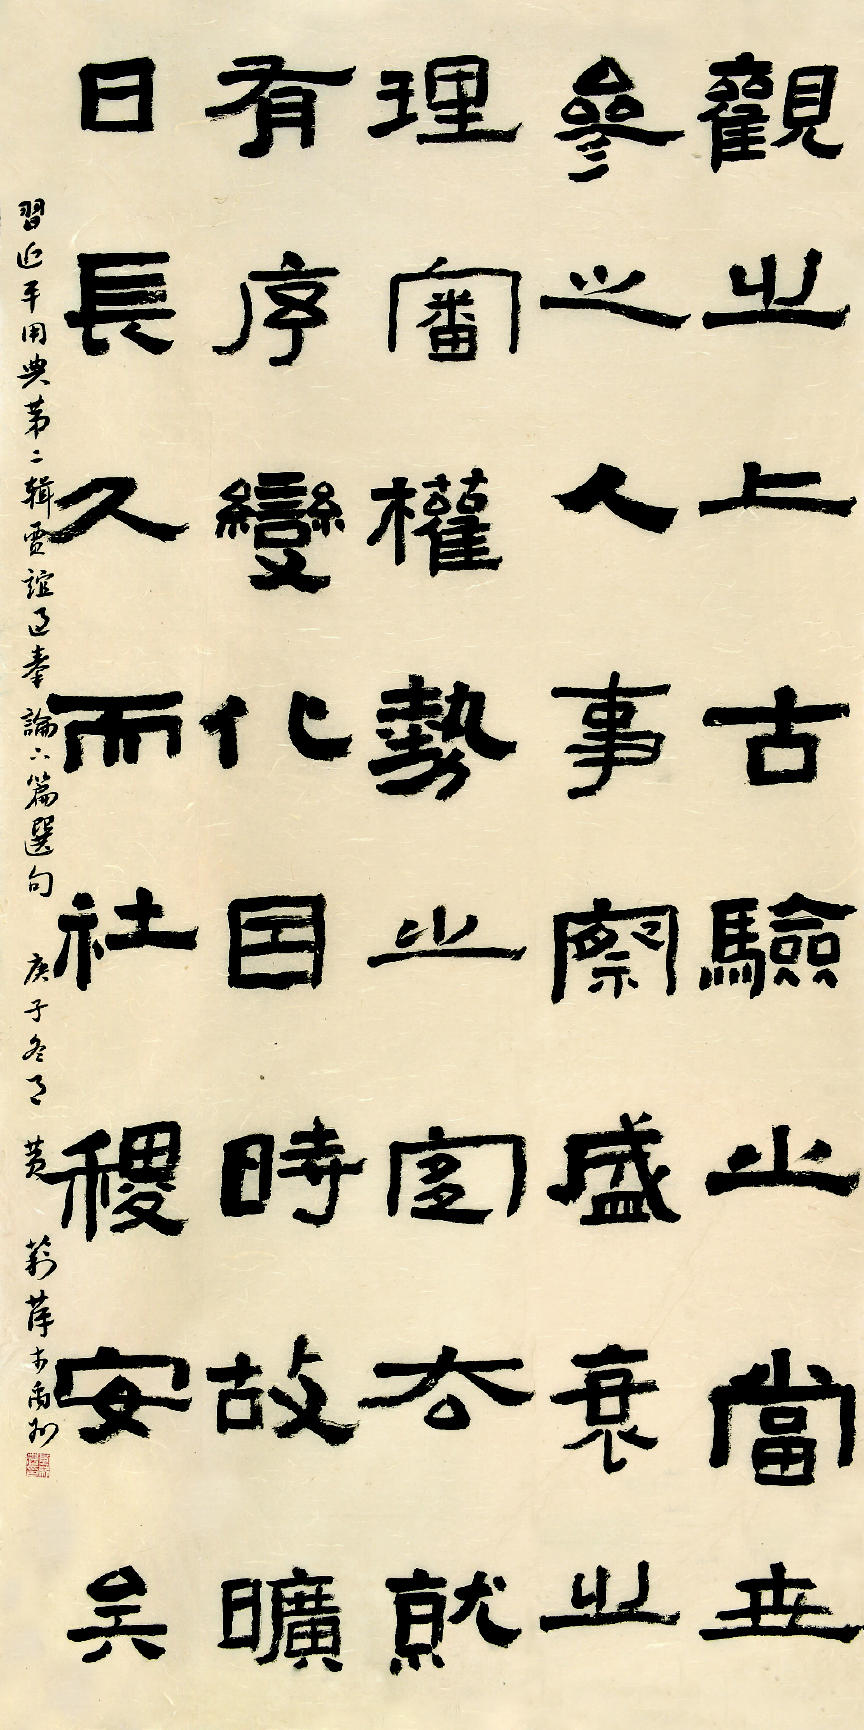 觀之上古驗之當世
參之人事察盛衰之
理審權勢之宜去就
有序變化因時故曠
日長久而社稷安矣
習近平用典第二輯賈誼過秦論下篇選句 庚子冬月 黄莉 书禹州